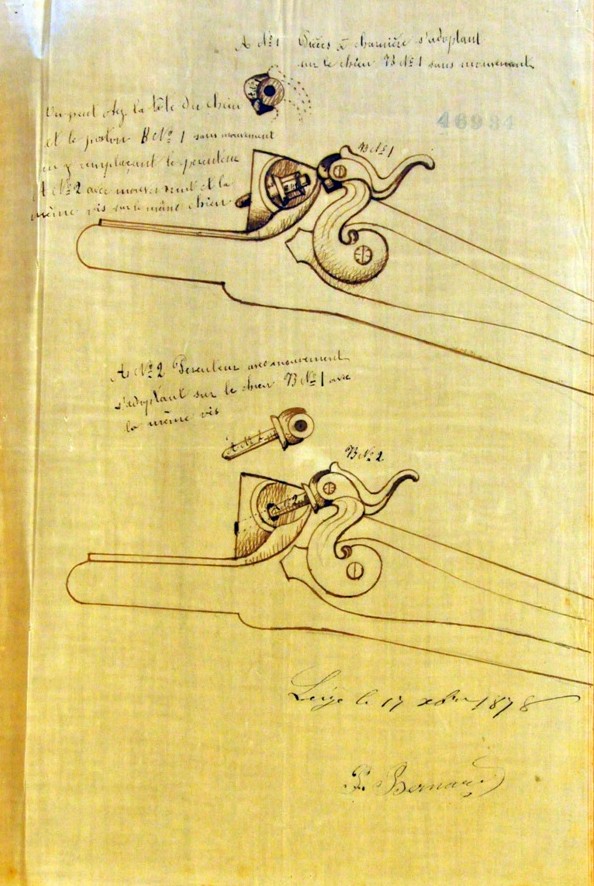 A Nº1 Pièces à charnière s'adaptant
sur le chien B Nº1 sans mouvement
46934
On peut la tête du chien
et le piston B Nº 1 sans mouvement
en y remplaçant le percuteur
A Nº2 avec mouvement et la
même vis sur le même chien
B Nº1
A Nº2 Percuteur avec mouvement
s'adoptant sur le chien B Nº1 avec
la même vis
A Nº2
B Nº2
Nº2
Liége le 17 xbre 1878
P. Bernard